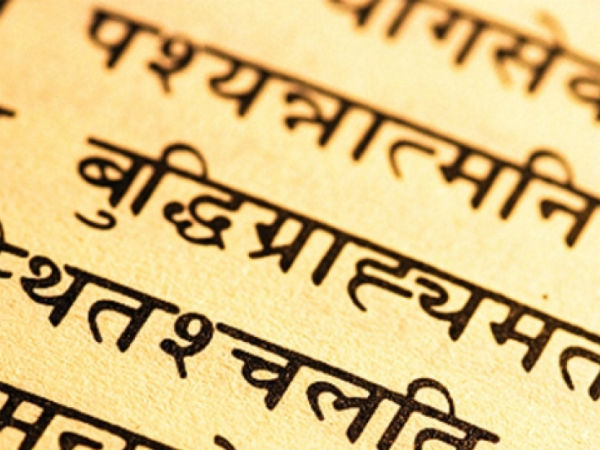 योगसेव
पश्यन्नात्मनि
बुद्धिग्राह्यमत
स्थितश्चलति